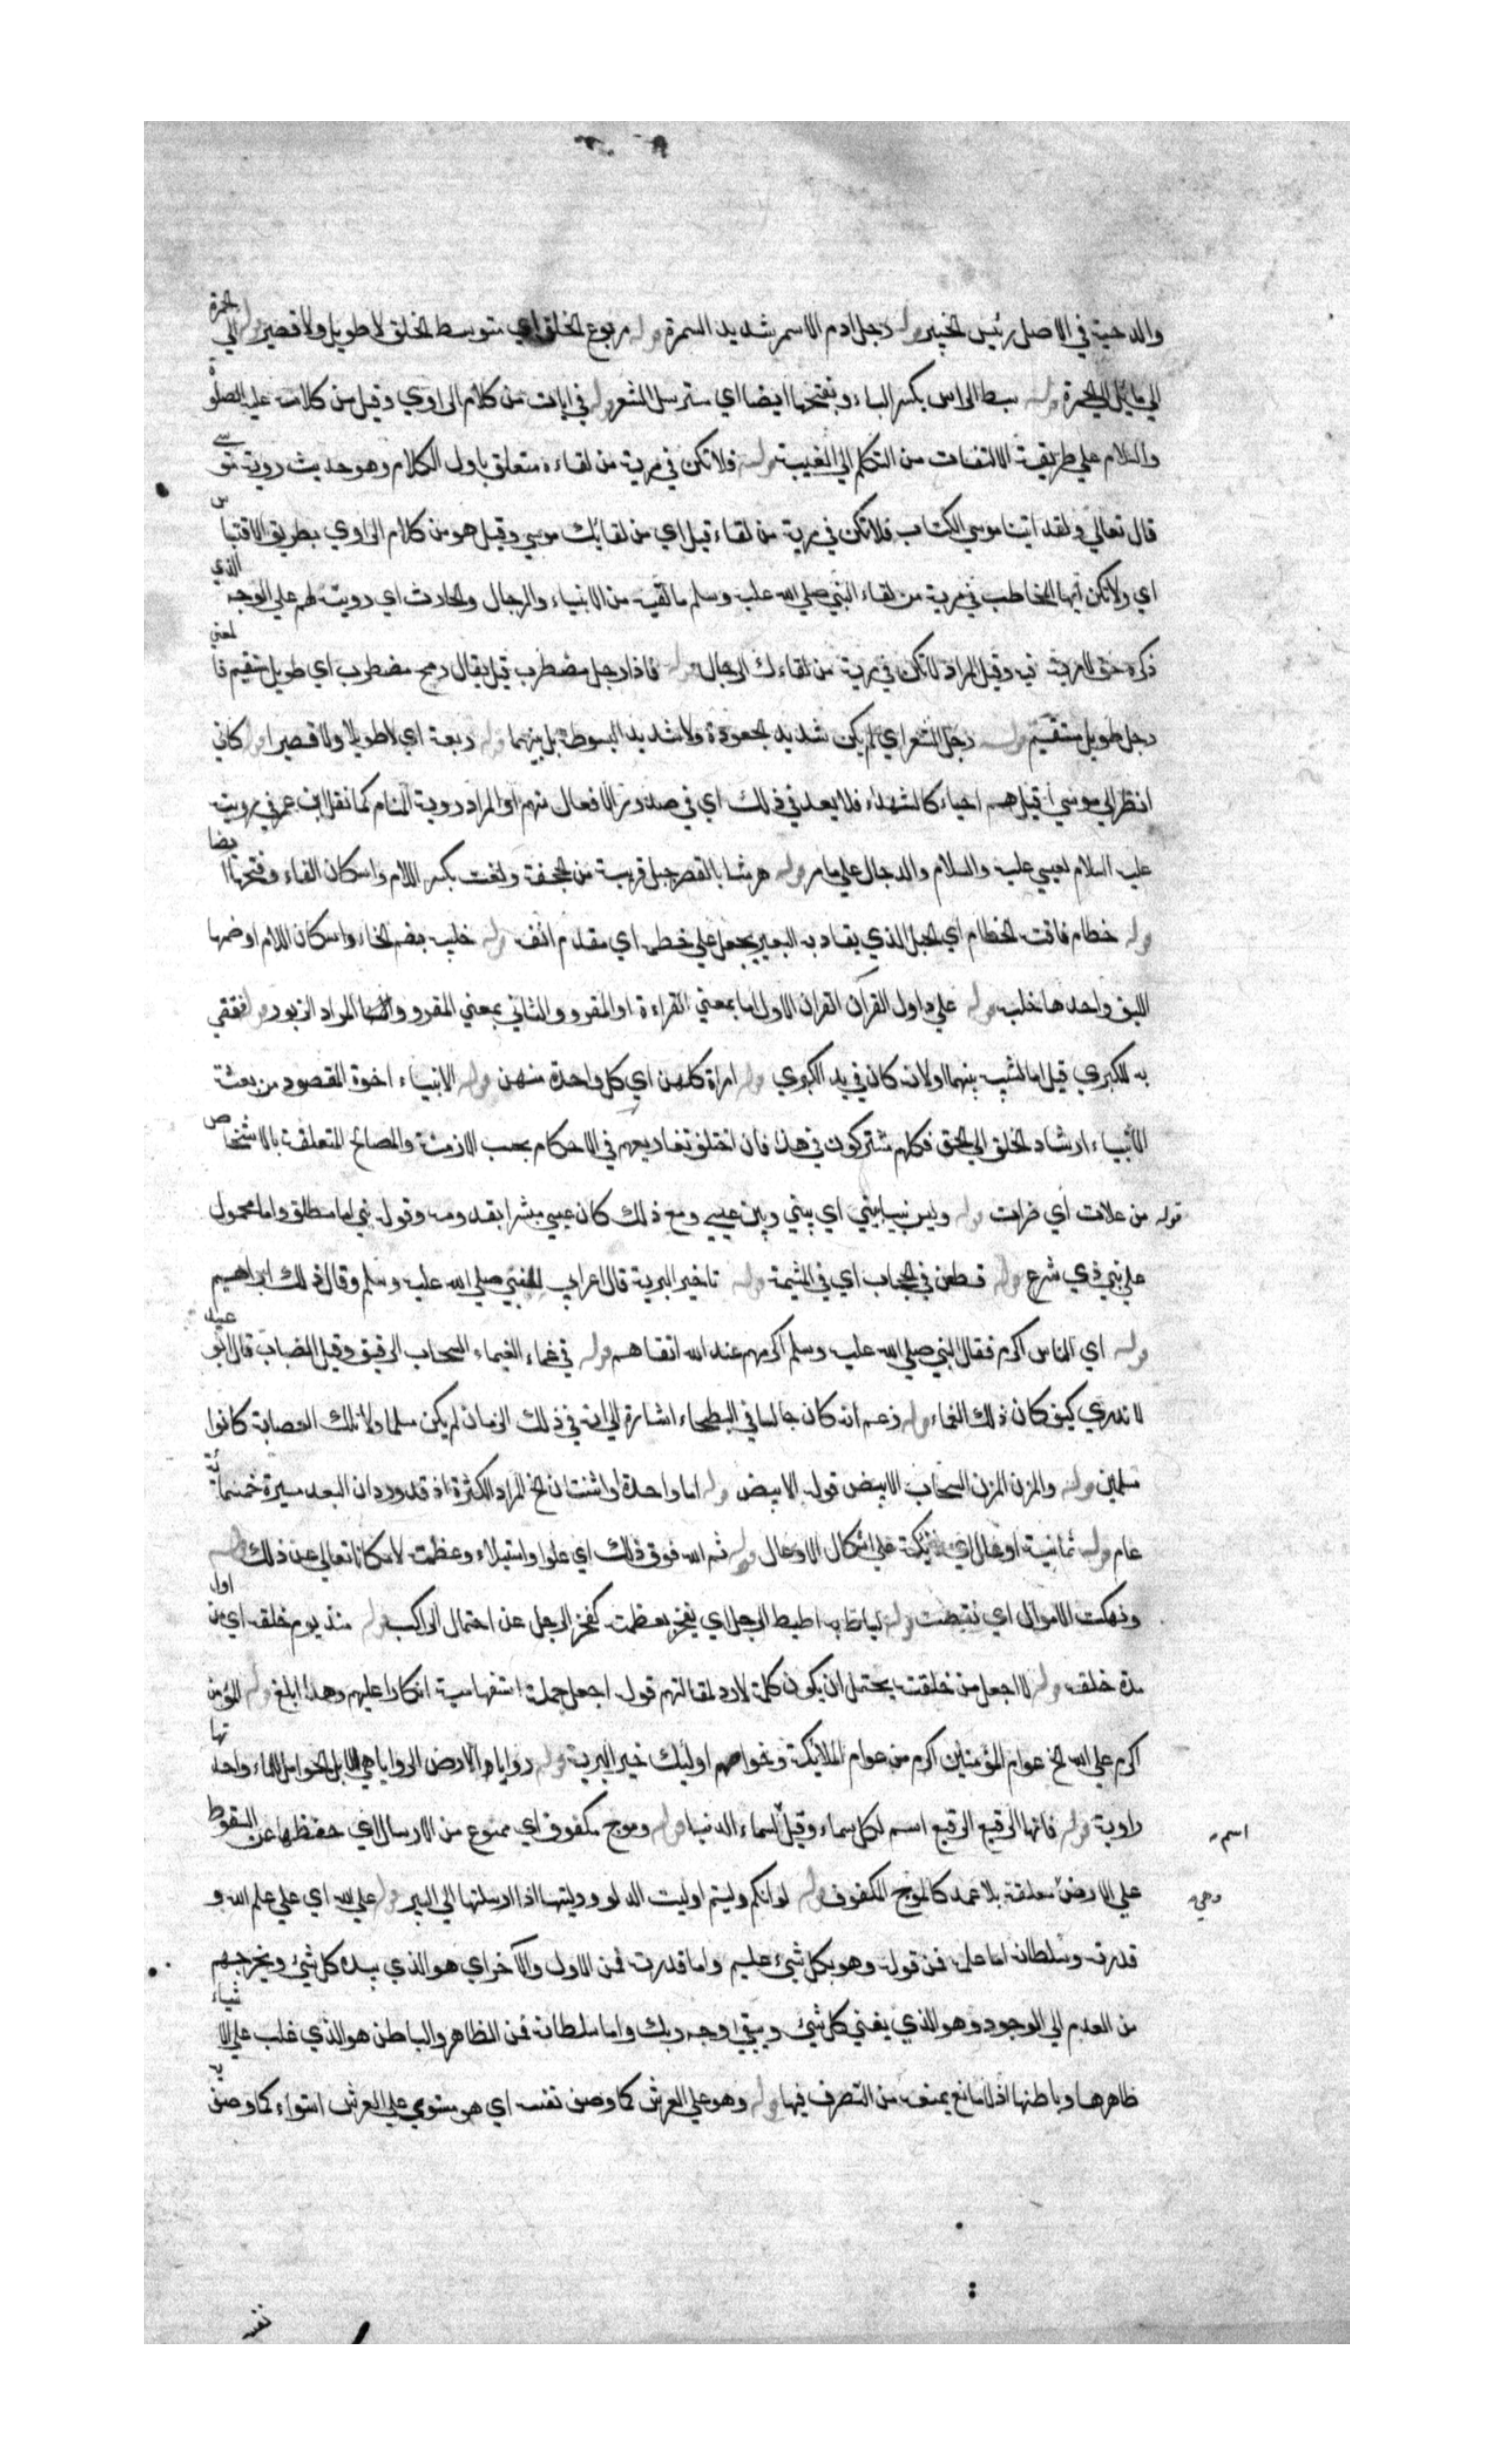 والدحية في الاصل رئيس الخير قوله رجل ادم الاسمر شديد السمرة قوله مربوع الخلق اي متوسط الخلق لا طويل ولا قصير قوله الي الحمرة
الي مائل الي الحمرة قوله سبط الراس بكسر الباء وبفتحها ايضا اي سترسل الشعر قوله في ايات من كلام الراوي وقيل من كلامه عليه الصلوة
والسلام علي طريقة الالتفات من التكلم الي الغيبة قوله فلا تكن في مرية من لقاءه متعلق باول الكلام وهو حديث روية موسي
قال تعالي ولقد اتينا موسي الكتاب فلا تكن في مرية من لقاءه قيل اي من لقائك موسي وقيل هو من كلام الراوي بطريق الاقتباس
اي ولا تكن ايها المخاطب في مرية من لقاء النبي صلي الله عليه وسلم ما لقيه من الانبياء والرجال والحادث اي رويته لهم علي الوجه الذي
ذكره حق لا مرية فيه وقيل المراد لا تكن في مرية من لقاءك الرجال قوله فاذا رجل مضطرب قيل يقال رمح مضطرب اي طويل مستقيم فا لمعني
رجل طويل مستقيم قوله رجل الشعر اي لم يكن شديد الجعودة ولا شديد السبوطة بل بينهما قوله ربعة اي لا طويلا ولا قصيرا قوله كاني
انظر الي موسي قيل هم احياء كالشهداء فلا بعد في ذلك اي في صدور الافعال منهم او المراد روية المنام كما نقل ابن عمر في رويته
عليه السلام لعيسي عليه والسلام والدجال علي ما مر قوله هرشا بالقصر جبل قريبة من الجحفة ولفت بكسر اللام واسكان الفاء وفتحها ايضا
قوله خطام ناقته الخطام اي الحبل الذي يقاد به البعير يجعل علي خطمه اي مقدم انفه قوله خلبه بضم الخاء واسكان اللام او ضمها
الليف واحدها خلبه قوله علي داود القرآن القران الاول اما بمعني القراءة او المقرو والثاني بمعني المقرو والمراد الزبور قوله فقضي
به للكبري قيل اما لشبه بينهما او لانه كان في يد الكبري قوله امراة كلهن اي كل واحدة منهن قوله الانبياء اخوة المقصود من بعثة
الانبياء ارشاد الخلق الي الحق فكلهم مشتركون في هذا فان اختلف تفاريعهم في الاحكام بحسب الازمنة والمصالح المتعلقة بالاشخاص
قوله من علات اي ضرات قوله وليس نبي بيني اي بيني وبين عيسي ومع ذلك كان عيسي مبشرا بقدومه وقوله نبي اما مطلق واما محمول
علي نبي ذي شرع قوله فطعن في الحجاب اي في المشيمة قوله تا خير البرية قال اعرابي للنبي صلي الله عليه وسلم وقال ذلك ابراهيم
قوله اي الناس اكرم فقال النبي صلي الله عليه وسلم اكرمهم عند الله اتقاهم قوله في غماء الغيماء السحاب الرقيق وقيل الضباب قال ابو عبيد
لا ندري كيف كان ذلك الغماء قوله زعم انه كان جالسا في البطحاء اشارة الي انه في ذلك الزمان لم يكن مسلما ولا تلك العصابة كانوا
مسلمين قوله والمزن المزن السحاب الابيض قوله الابيض قوله اما واحدة او اثنتان الخ المراد الكثرة اذ قد ورد ان البعد مسيرة خمسمائة
عام قوله ثمانية اوعال اي ملائكة علي اشكال الاوعال قوله ثم الله فوق ذلك اي علوا واستيلاء وعظمة لا مكانا تعالي عن ذلك قوله
ونهكت الاموال اي نقصت قوله ليأط به اطيط الرحل اي يعجز بعظمته كعجز الرحل عن احتمال الراكب قوله منذ يوم خلقه اي من اول
مدة خلقه قوله لا اجعل من خلقته يحتمل ان يكون كلمة لا رد لمقالتهم قوله اجعل جملة استفهامية انكارا عليهم وهذا ابلغ قوله المؤمن
اكرم علي الله الخ عوام المؤمنين اكرم من عوام الملائكة وخواصهم اولئك خير البرية قوله روايا الارض الروايا هي الابل الحوامل للماء واحدتها
راوية قوله فانها الرقيع الرقيع اسم لكل سماء وقيل اسم لسماء الدنيا قوله وموج مكفوف اي ممنوع من الارسال اي حفظها عن السقوط
علي الارض وهي معلقة بلا عمد كالموج المكفوف قوله لو انكم دليتم ادليت الدلو ودليتها اذا ارسلتها الي البير قوله علي الله اي علي علم الله و
قدرته وسلطانه اما علمه فمن قوله وهو بكل شيء عليم واما قدرته فمن الاول والآخر اي هو الذي يبدء كل شيء ويخرجهم
من العدم الي الوجود وهو الذي يفني كل شيء ويبقي وجه ربك واما سلطانه فمن الظاهر والباطن هو الذي غلب علي الاشياء
ظاهرها وباطنها اذ لا مانع يمنعه من التصرف فيها قوله وهو علي العرش كما وصف نفسه اي هو مستوي علي العرش استواء كما وصف به
نفسه